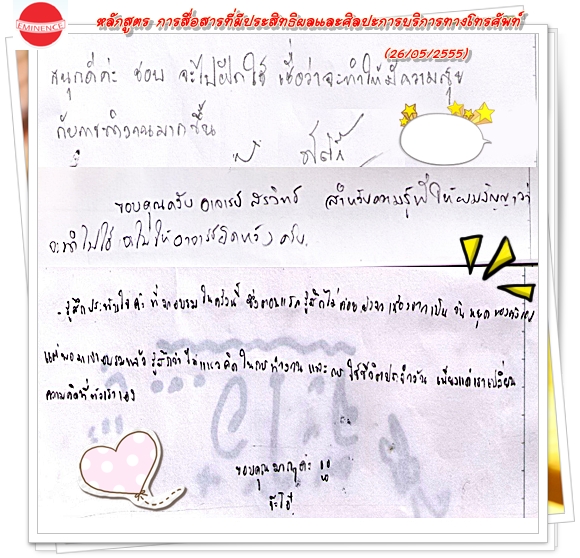 EMINENCE
หลักสูตร การสื่อสารที่มีประสิทธิผลและศิลปะการบริการทางโทรศัพท์
(26/05/2555)
สนุกดีค่ะ ชอบ จะไปฝึกใช้ เชื่อว่าจะทำให้มีความสุข
กับการทำงานมากขึ้น
ขอบคุณครับ อาจารย์ สำหรับความรู้ที่ให้ผมสัญญาว่า
จะนำไปใช้ จะไม่ให้อาจารย์ผิดหวัง ครับ.
- รู้สึกประทับใจค่ะ ที่มาอบรมในครั้งนี้ ซึ่งตอนแรกรู้สึกไม่ค่อยอยากมา เนื่องจากเป็นวันหยุดของตัวเอง
แต่พอมาเข้าอบรมแล้ว รู้สึกว่า ได้แนวคิดในการทำงาน และการใช้ชีวิตประจำวัน เพียงแค่เราเปลี่ยน
ความคิดที่ตัวเราเอง
ขอบคุณมากๆค่ะ